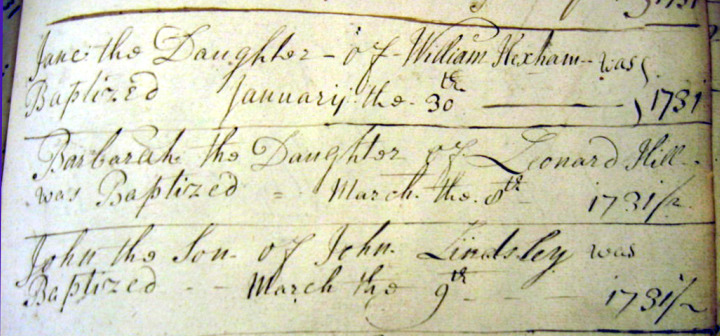 Jane the Daughter - of - William Hexham - was
Baptized January the 30th ——— 1731
Barbarah the Daughter of Leonard Hill -
was Baptized = March the 8th 1731/2
John the Son of John Lindsley was
Baptized - - March the 9th - - 1731/2